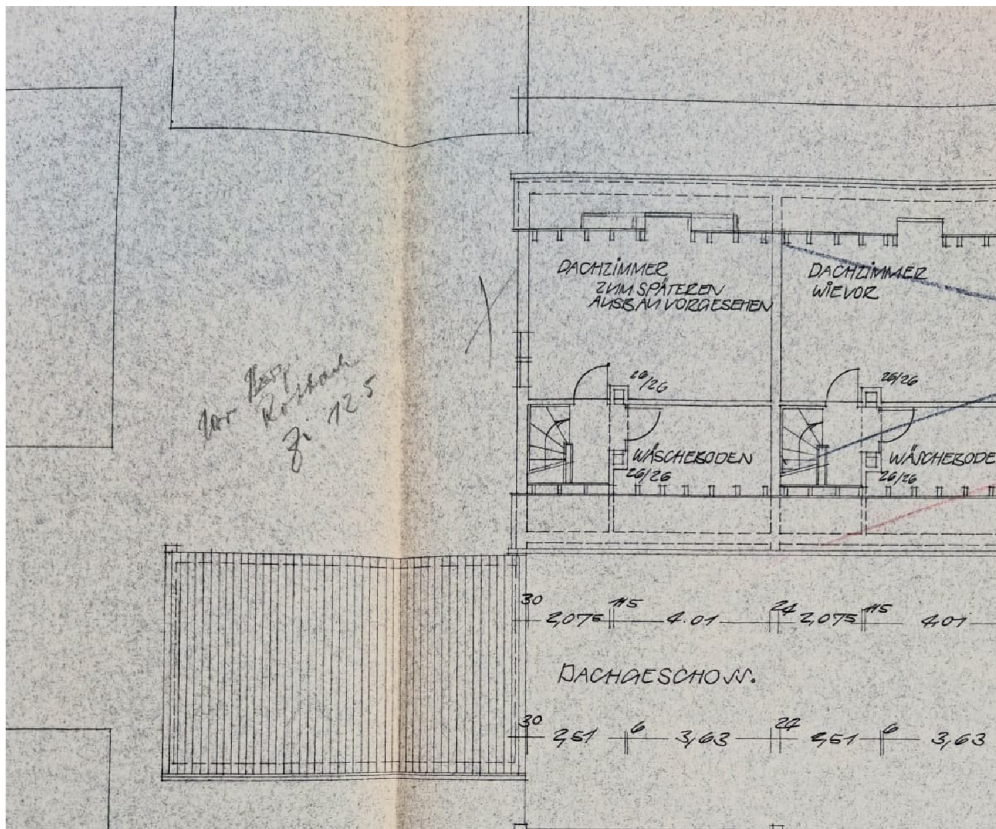 DACHZIMMER
ZUM SPÄTEREN
AUSBAU VORGESEHEN
DACHZIMMER
WIE VOR
26/26
26/26
WÄSCHEBODEN
26/26
WÄSCHEBODE
26/26
125
30 2,075 11⁵ 4.01 24 2,075 11⁵ 4,01
DACHGESCHOSS.
30 2,51 6 3,63 24 2,51 6 3,63